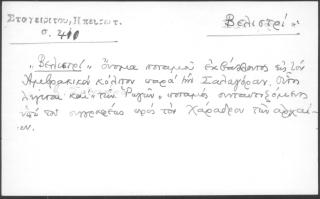 Σταγειρίτου, Ηπειρωτ.
σ. 410
Βελιστρί
„Βελιστρί„ ὄνομα ποταμοῦ ἐκβάλλοντος εἰς τὸν
Ἀμβρακικὸν κόλπον παρὰ τὴν Σαλαγόραν. Οὗτος
λέγεται καὶ „τῶν Ρωγῶν„ ποταμὸς συνταυτιζόμενος
ὑπὸ τοῦ συγγραφέως πρὸς τὸν Χάραδρον τῶν ἀρχαί-
ων.